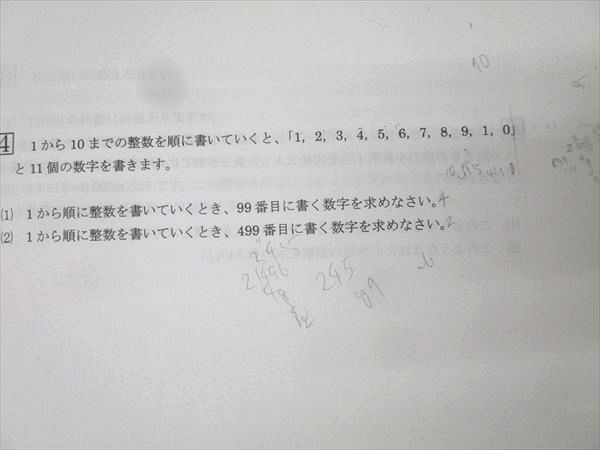 10
4 1から10までの整数を順に書いていくと、「1, 2, 3, 4, 5, 6, 7, 8, 9, 1, 0」
と11個の数字を書きます。
(1) 1から順に整数を書いていくとき、99番目に書く数字を求めなさい。4
(2) 1から順に整数を書いていくとき、499番目に書く数字を求めなさい。2
245
2)490
245